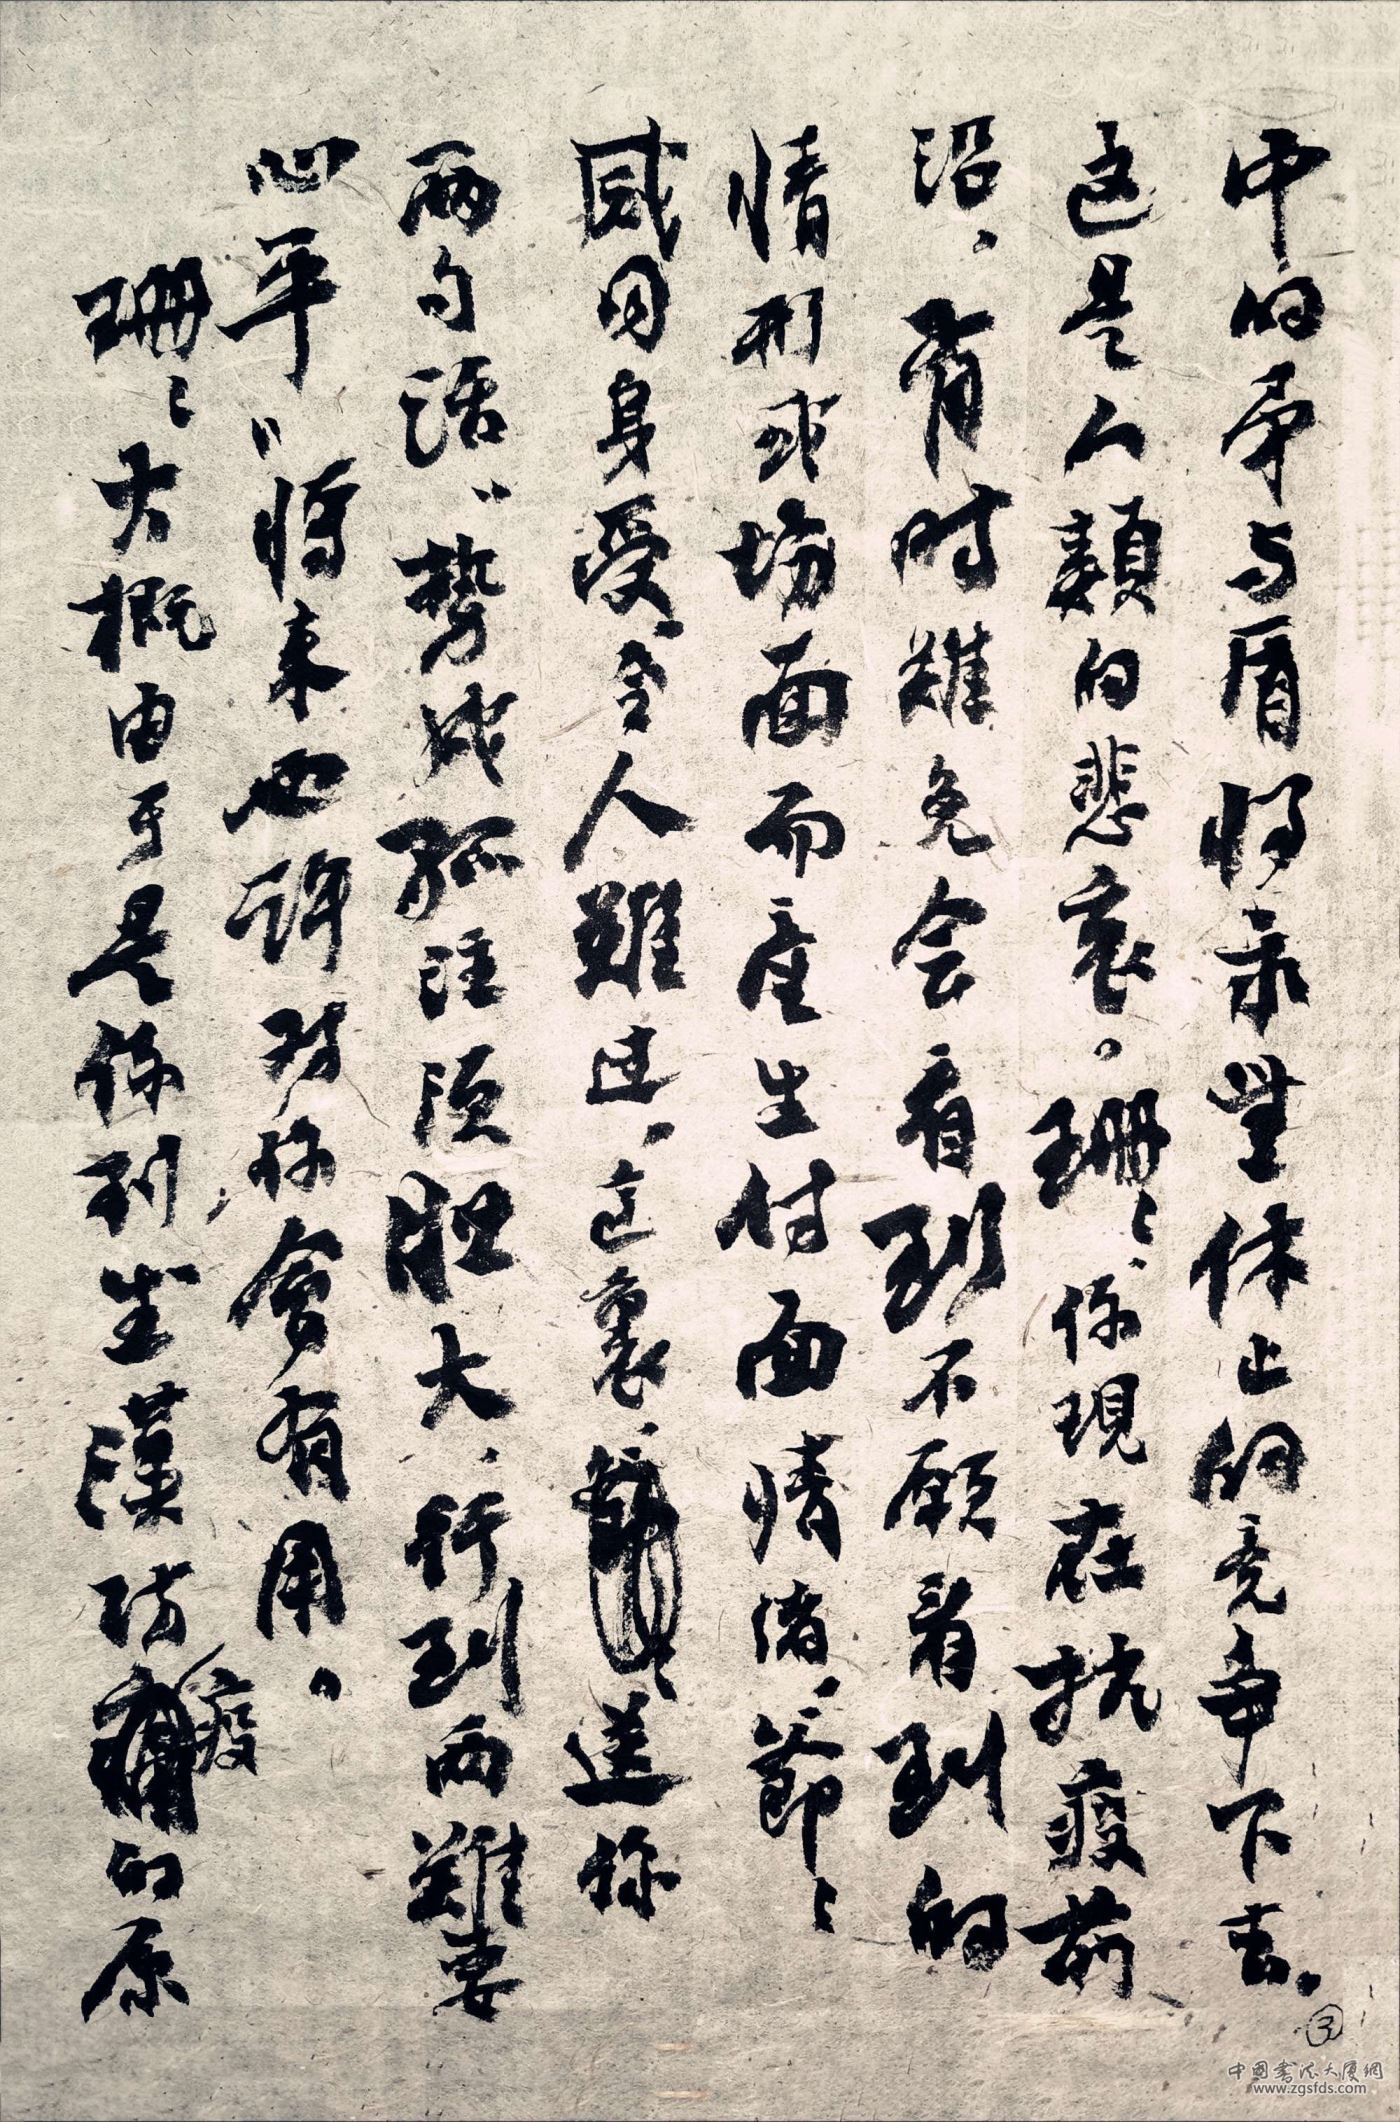 中的矛与盾将永無休止的竞争下去。
这是人類的悲哀。珊珊、你現在抗疫前
沿、有时难免会看到不愿看到的
情形或場面而產生付面情绪、節節
感同身受、令人難过、这裏、送你
兩句话、"势成孤注须胆大、行到兩難要
心平"将来也許对你會有用。
珊珊大概由于是你到武漢防疫的原
③
中国书法大厦網
www.zgsfds.com